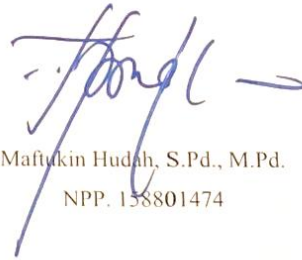 Maftukin Hudah, S.Pd., M.Pd.
NPP. 158801474